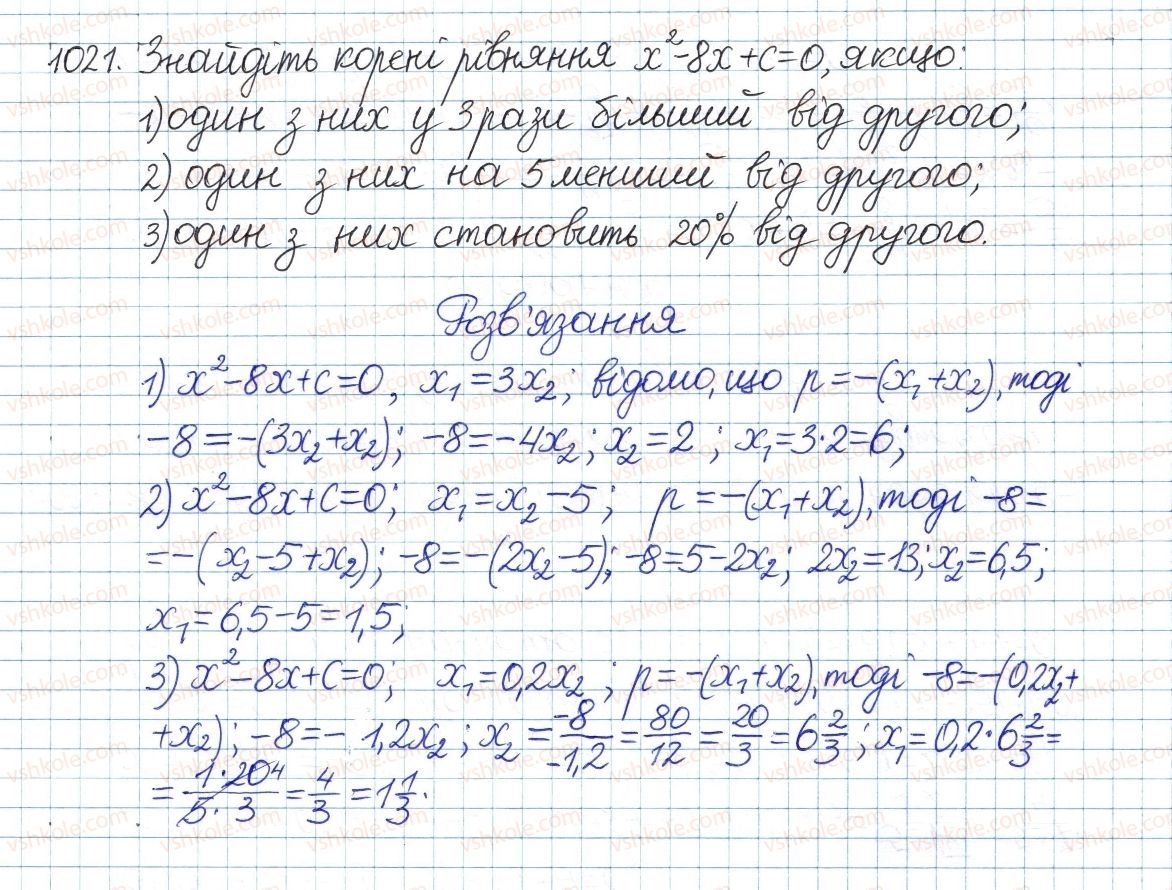 1021. Знайдіть корені рівняння x²-8x+c=0, якщо:
1) один з них у 3 рази більший від другого;
2) один з них на 5 менший від другого;
3) один з них становить 20% від другого.
Розв'язання
1) x²-8x+c=0, x₁=3x₂; відомо, що p=-(x₁+x₂), тоді
-8=-(3x₂+x₂); -8=-4x₂; x₂=2; x₁=3·2=6;
2) x²-8x+c=0; x₁=x₂-5; p=-(x₁+x₂), тоді -8=
=-(x₂-5+x₂); -8=-(2x₂-5); -8=5-2x₂; 2x₂=13; x₂=6,5;
x₁=6,5-5=1,5;
3) x²-8x+c=0; x₁=0,2x₂; p=-(x₁+x₂), тоді -8=-(0,2x₂+
+x₂); -8=-1,2x₂; x₂=-8/-1,2=80/12=20/3=6 2/3; x₁=0,2·6 2/3=
=1·20 4/5·3=4/3=1 1/3.